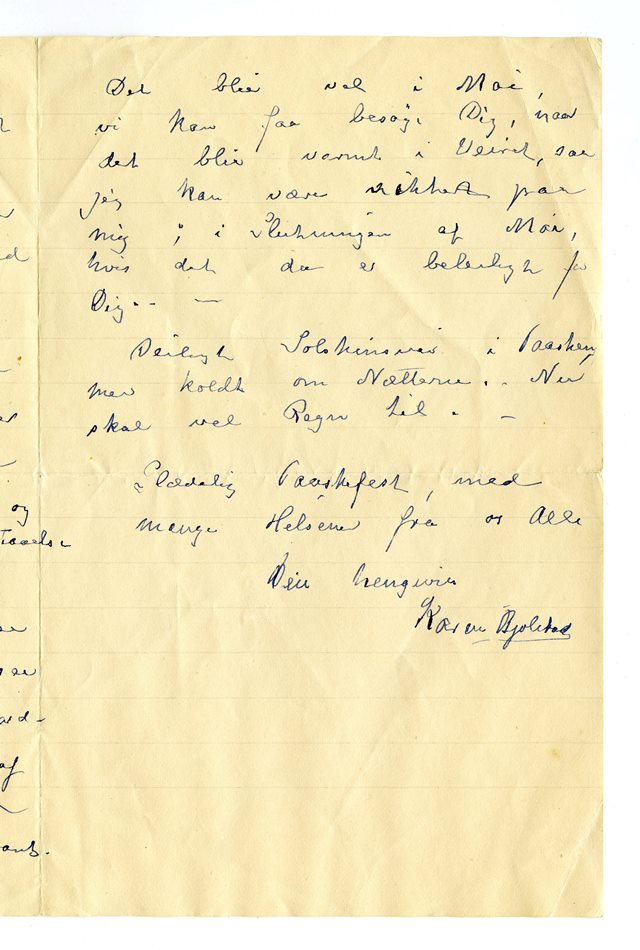 Det bliv vel i Mai,
vi kan faa besøge Dig, naar
det bliv varmt i Veiret, saa
jeg kan være sikker paa
mig, i Slutningen af Mai,
hvis det da er beleiligt for
Dig. . —
Deiligt Solskinsveir i Paasken,
men koldt om Nætterne. . Nu
skal vel Regn til. —
Glædelig Paaskefest, med
mange Helsener fra os Alle
Din hengivne
Karen Bjølstad
og
af